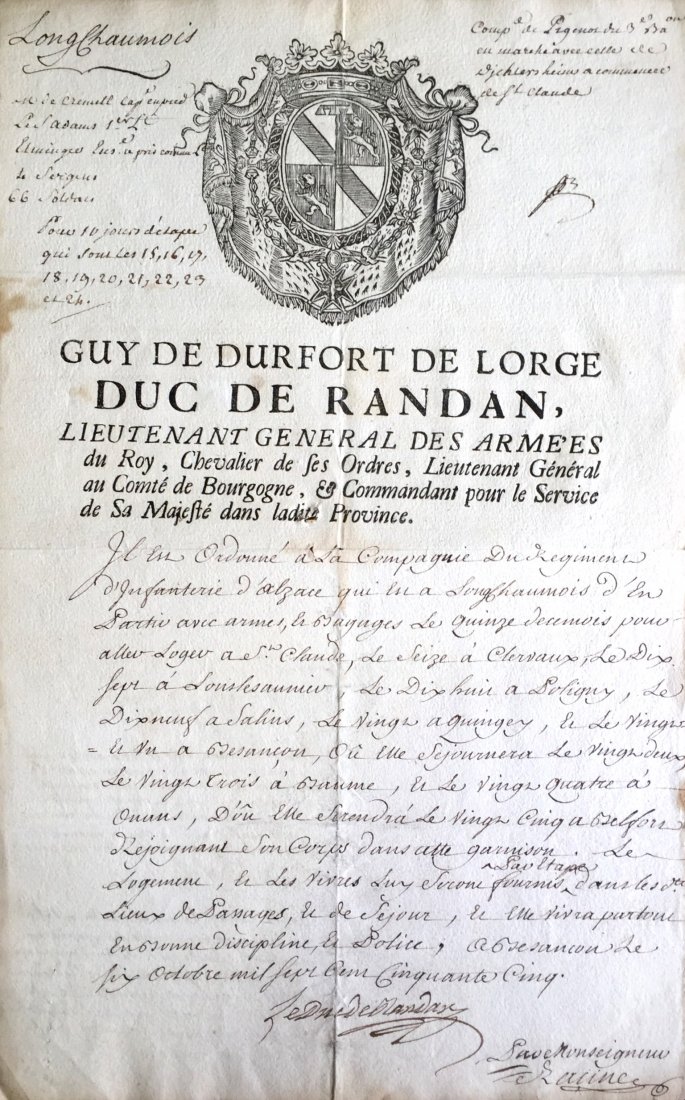 LongChaumois
Comp.e de Pigenot du 3.e Ba.on
en marche avec celle de
Dichtersheim a commencer
de St Claude
M. de Cremell Cap.e en pied
Le S. Adams 1.er Lt
4 Sergens
66 Soldats
Pour 10 jours d'étape
qui sont les 15, 16, 17,
18, 19, 20, 21, 22, 23
et 24.
GUY DE DURFORT DE LORGE
DUC DE RANDAN,
LIEUTENANT GENERAL DES ARMÉES
du Roy, Chevalier de ses Ordres, Lieutenant Général
au Comté de Bourgogne, & Commandant pour le Service
de Sa Majesté dans ladite Province.
Il Est Ordonné à La Compagnie Du Regiment
d'Infanterie d'Alzace qui Est a LongChaumois d'En
Partir avec armes, Et Bagages Le Quinze decemois pour
aller Loger a St. Claude, Le Seize à Clervaux, Le Dix
sept à Lonslesaunier, Le Dixhuit a Poligny, Le
Dixneuf a Salins, Le Vingt a Quingey, Et Le Vingt
= Et Un a Besançon, Où Elle Sejournera Le Vingt deux,
Le Vingt Trois à Baume, Et Le Vingt Quatre à
Onans, D'où Elle Se rendrá Le Vingt Cinq a Belfort
Rejoignant Son Corps dans cette garnison. Le
Logement, Et Les Vivres Luy Seront fournis Par Etape dans les d.es
Lieux de Passages, Et de Séjour, Et Elle Vivra partout
En Bonne discipline, Et Police, a Besançon Le
Six Octobre mil Sept Cent Cinquante Cinq.
Le Duc de Randan
Par Monseigneur
Racine